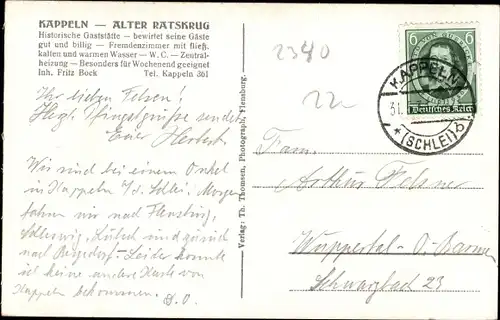 KAPPELN — ALTER RATSKRUG
Historische Gaststätte - bewirtet seine Gäste
gut und billig — Fremdenzimmer mit fließ.
kalten und warmen Wasser — W.C. — Zentral-
heizung — Besonders für Wochenend geeignet
Inh. Fritz Bock Tel. Kappeln 361
Ihr lieben Felsner!
Herzl. Pfingstgrüße sendet
Euer Herbert
Wir sind bei einem Onkel
in Kappeln a/d. Schlei. Morgen
fahren wir nach Flensburg,
Schleswig, Lübeck und zurück
nach Bergedorf. Leider konnte
ich keine andere Karte von
Kappeln bekommen. D.O.
Verlag: Th. Thomsen, Photograph, Flensburg.
2340
22-
6
6
Deutsches Reich
KAPPELN
31.
* (SCHLEI)
Fam.
Arthur Felsner
Wuppertal-O. Barmen
Schwarzbach 23